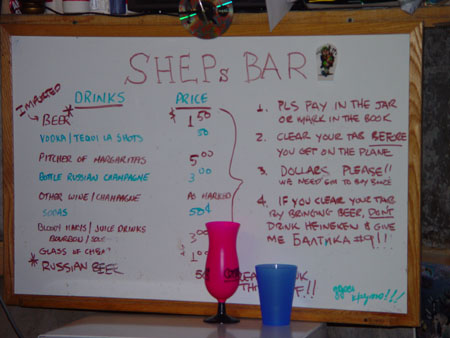 SHEPS BAR
IMPORTED
DRINKS
PRICE
* BEER
$ 1.50
VODKA/TEQUILA SHOTS
50
PITCHER OF MARGARITAS
5.00
BOTTLE RUSSIAN CHAMPAGNE
3.00
OTHER WINE/CHAMPAGNE
AS MARKED
SODAS
50¢
BLOODY MARYS/JUICE DRINKS
3.00
BOURBON/
GLASS OF
$1.00
* RUSSIAN BEER
1. PLS PAY IN THE JAR
OR MARK IN THE BOOK
2. CLEAR YOUR TAB BEFORE
YOU GET ON THE PLANE
3. DOLLARS PLEASE!!
WE NEED EM TO BUY BOOZE
4. IF YOU CLEAR YOUR TAB
BY BRINGING BEER, DON'T
DRINK HEINEKEN & GIVE
ME БАЛТИКА #9!!!
!!